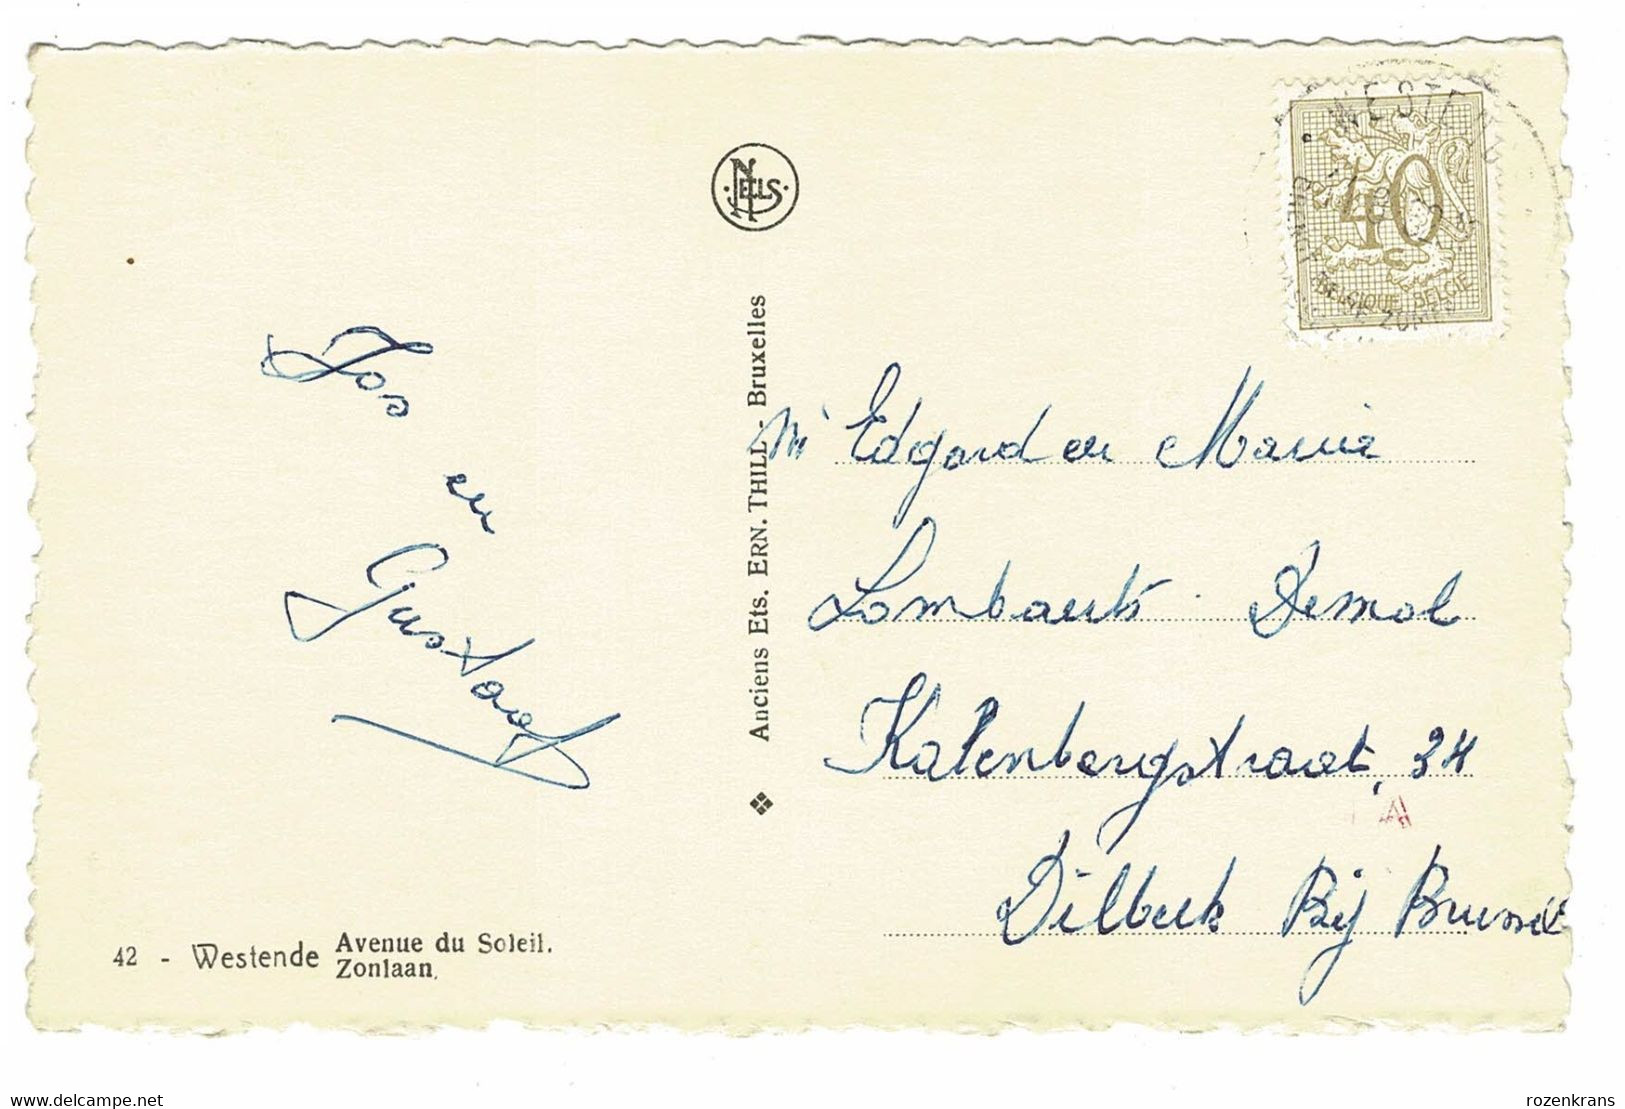 Jos
en
Gustaaf
NELS
Anciens Ets. ERN. THILL - Bruxelles
WESTEND
40
c
BELGIQUE BELGIE
Mr Edgard en Maria
Lombaerts - Demol
Kalenbergstraat, 34
A
Dilbeek Bij Brussel
42 - Westende Avenue du Soleil.
Zonlaan.
delcampe.net
rozenkrans